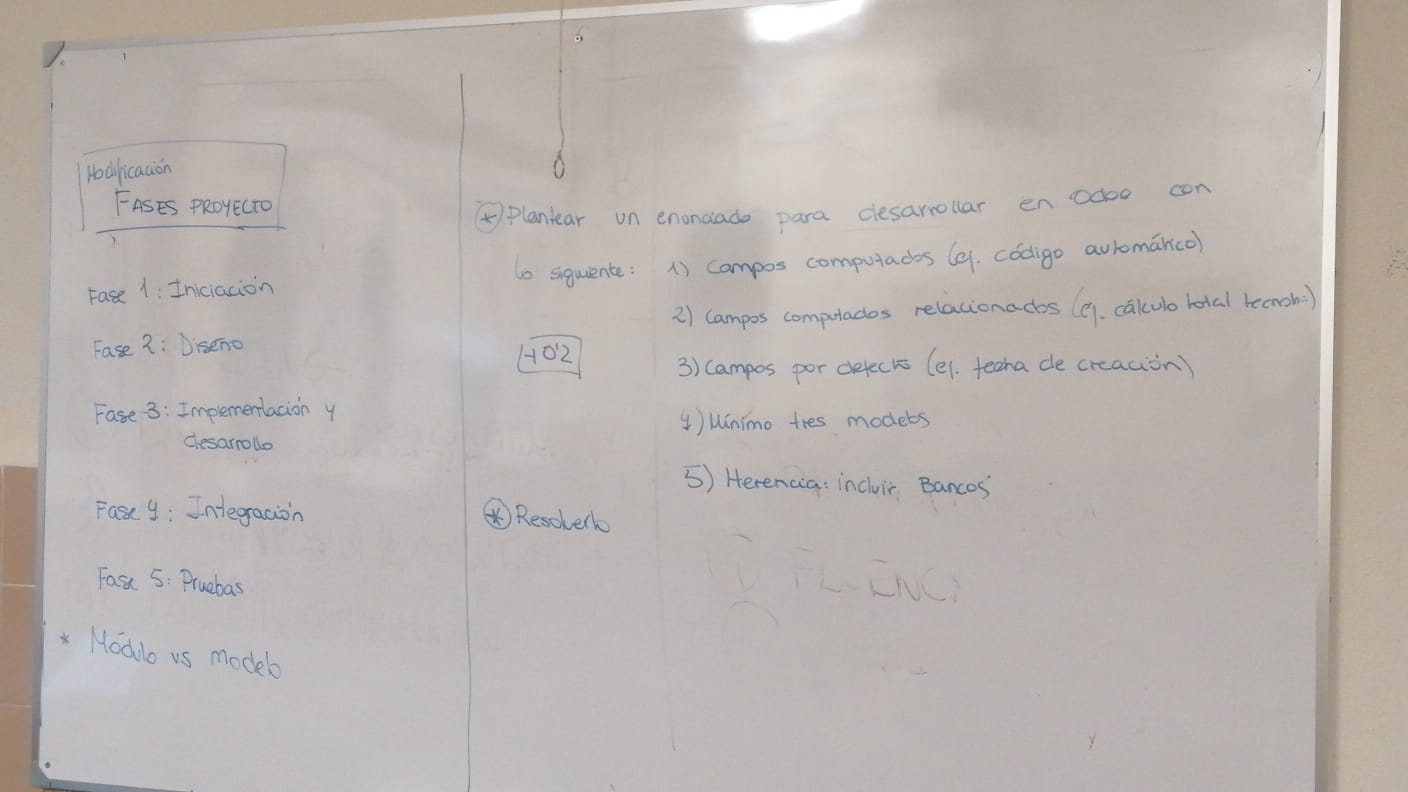 Modificación
FASES PROYECTO
Fase 1: Iniciación
Fase 2: Diseño
Fase 3: Implementación y
desarrollo
Fase 4: Integración
Fase 5: Pruebas
* Módulo vs modelo
* Plantear un enunciado para desarrollar en Odoo con
lo siguiente: 1) Campos computados (ej. código automático)
2) Campos computados relacionados (ej. cálculo total
+0'2
3) Campos por defecto (ej. fecha de creación)
4) Mínimo tres modelos
5) Herencia: incluir Bancos
* Resolverlo